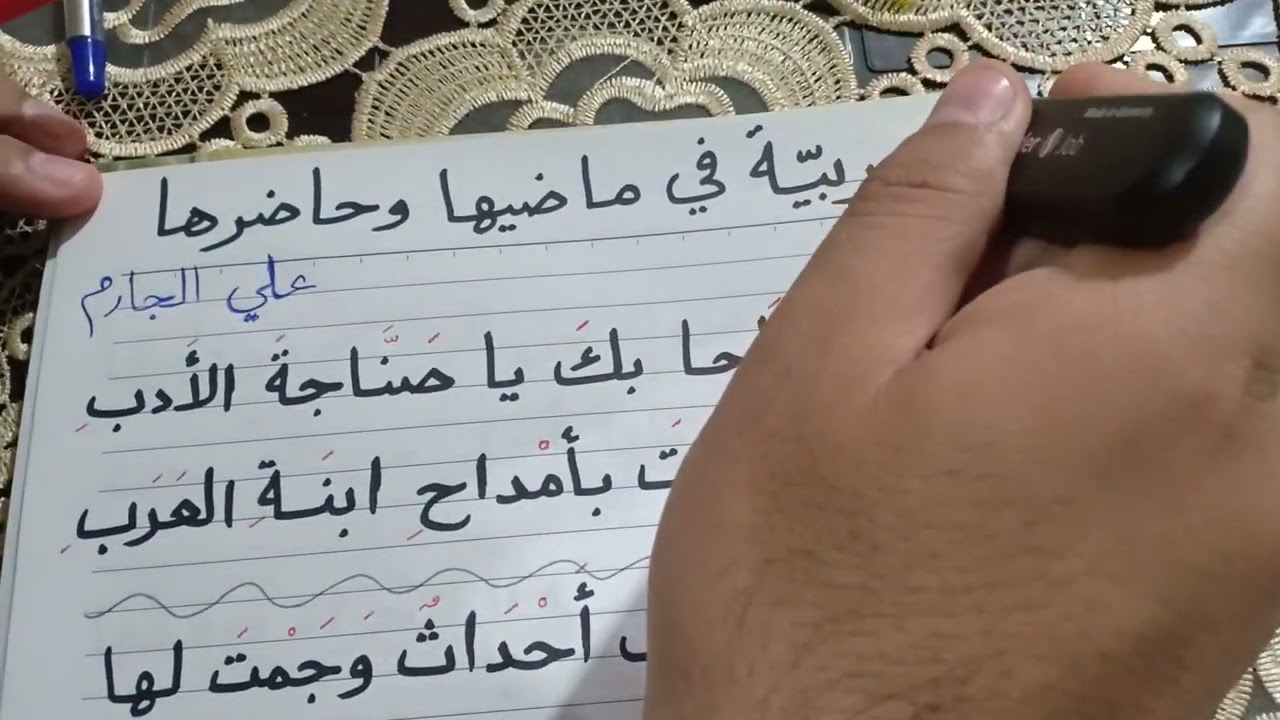 في ماضيها وحاضرها
علي الجارم
بكَ يا صَنَّاجةَ الأَدبِ
بأمْداحِ ابنَةِ العَرَبِ
أَحْدَاثٌ وَجَمْتَ لها